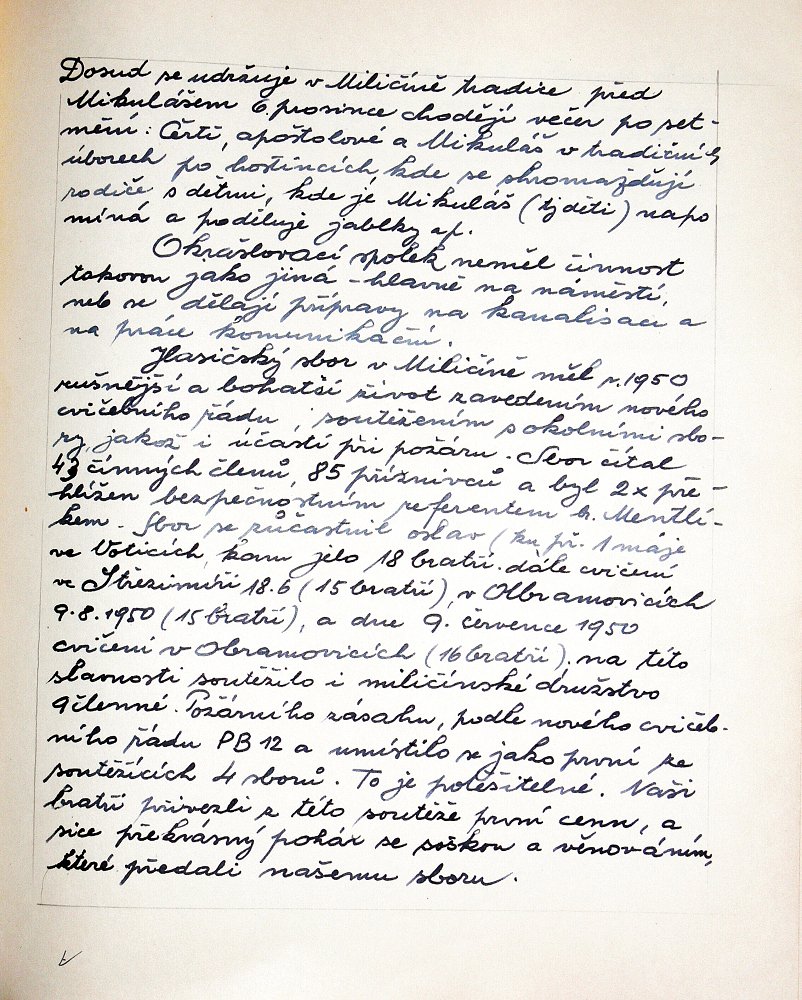 Dosud se udržuje v Miličíně tradice před
Mikulášem 6 prosince chodějí večer po set-
mění: Čerti, apoštolové a Mikuláš v tradičních
úborech po hostincích, kde se shromažďují
rodiče s dětmi, kde je Mikuláš (tj děti) napo
míná a poděluje jablky a j.
Okrašlovací spolek neměl činnost
takovou jako jiná - hlavně na náměstí,
neb se dělají přípravy na kanalisaci a
na práce komunikační.
Hasičský sbor v Miličíně měl r. 1950
rušnější a bohatší život zavedením nového
cvičebního řádu, soutěžením s okolními sbo-
ry, jakož i účastí při požáru. Sbor čítal
43 činných členů, 85 příznivců a byl 2x pře-
hlížen bezpečnostním referentem br. Mentlí-
kem. Sbor se zúčastnil oslav (ku př. 1 máje
ve Voticích, kam jelo 18 bratří. dále cvičení
ve Střezimíři 18.6 (15 bratří), v Olbramovicích
9.8.1950 (15 bratří), a dne 9. července 1950
cvičení v Obramovicích (16 bratří). na této
slavnosti soutěžilo i miličínské družstvo
9členné. Požárního zásahu, podle nového cvičeb-
ního řádu PB 12 a umístilo se jako první ze
soutěžících 4 sborů. To je potěšitelné. Naši
bratří přivezli z této soutěže první cenu, a
sice překrásný pohár se soškou a věnováním,
které předali našemu sboru.